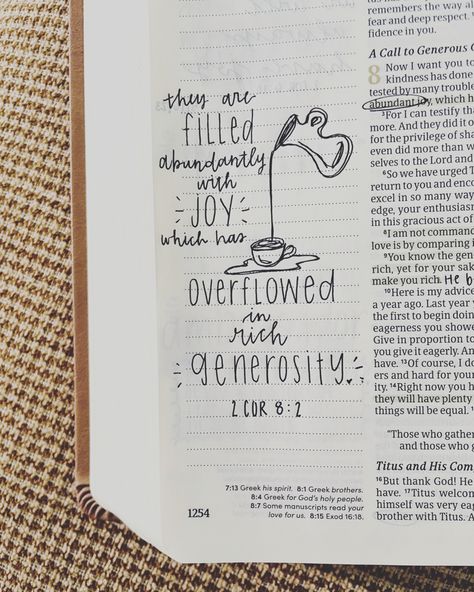 they are
filled
abundantly
with
JOY
which has
overflowed
in
rich
generosity.
2 COR 8:2
7:13 Greek his spirit. 8:1 Greek brothers.
8:4 Greek for God's holy people.
8:7 Some manuscripts read your
love for us. 8:15 Exod 16:18.
1254
remembers the way al
fear and deep respect.
fidence in you.
A Call to Generous G
8 Now I want you to
kindness has done
tested by many trouble
abundant joy, which h
3For I can testify tha
more. And they did it o
for the privilege of sha
even did more than w
selves to the Lord and
6So we have urged T
return to you and enco
excel in so many way
edge, your enthusiasm
in this gracious act of
8I am not command
love is by comparing i
9You know the gen
rich, yet for your sak
make you rich. He b
10Here is my advice
a year ago. Last year
the first to begin doin
eagerness you showe
Give in proportion to
you give it eagerly. An
have. 13Of course, I do
ers and hard for yours
ity. 14Right now you h
they will have plenty
things will be equal. 1
"Those who gather
and those who g
Titus and His Com
16But thank God! He
have. 17Titus welcom
himself was very eag
brother with Titus. A